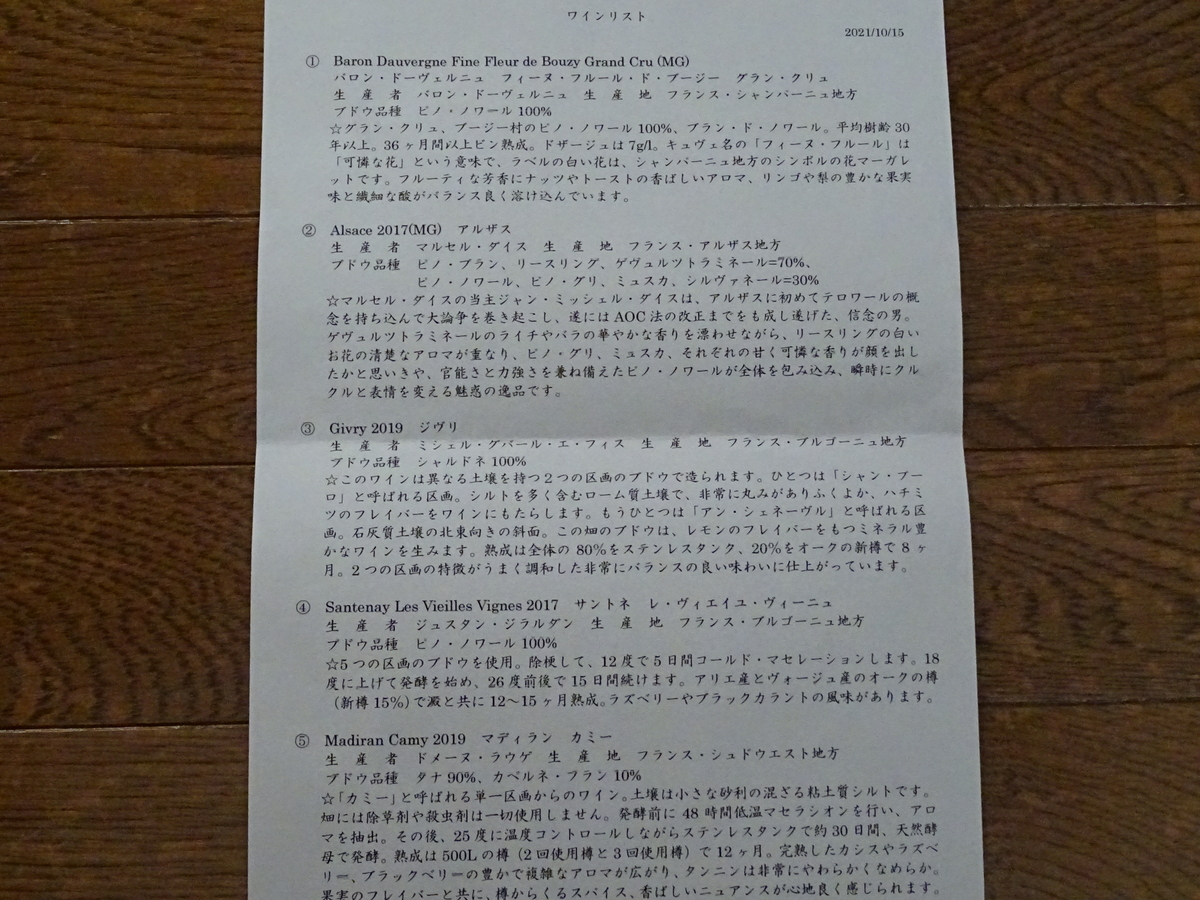 ワインリスト
2021/10/15
① Baron Dauvergne Fine Fleur de Bouzy Grand Cru (MG)
バロン・ドーヴェルニュ フィーヌ・フルール・ド・ブージー グラン・クリュ
生 産 者 バロン・ドーヴェルニュ 生 産 地 フランス・シャンパーニュ地方
ブドウ品種 ピノ・ノワール 100%
☆グラン・クリュ、ブージー村のピノ・ノワール 100%、ブラン・ド・ノワール。平均樹齢 30
年以上。36 ヶ月間以上ビン熟成。ドザージュは 7g/l。キュヴェ名の「フィーヌ・フルール」は
「可憐な花」という意味で、ラベルの白い花は、シャンパーニュ地方のシンボルの花マーガレ
ットです。フルーティな芳香にナッツやトーストの香ばしいアロマ、リンゴや梨の豊かな果実
味と繊細な酸がバランス良く溶け込んでいます。
② Alsace 2017(MG) アルザス
生 産 者 マルセル・ダイス 生 産 地 フランス・アルザス地方
ブドウ品種 ピノ・ブラン、リースリング、ゲヴュルツトラミネール=70%、
ピノ・ノワール、ピノ・グリ、ミュスカ、シルヴァネール=30%
☆マルセル・ダイスの当主ジャン・ミッシェル・ダイスは、アルザスに初めてテロワールの概
念を持ち込んで大論争を巻き起こし、遂には AOC 法の改正までをも成し遂げた、信念の男。
ゲヴュルツトラミネールのライチやバラの華やかな香りを漂わせながら、リースリングの白い
お花の清楚なアロマが重なり、ピノ・グリ、ミュスカ、それぞれの甘く可憐な香りが顔を出し
たかと思いきや、官能さと力強さを兼ね備えたピノ・ノワールが全体を包み込み、瞬時にクル
クルと表情を変える魅惑の逸品です。
③ Givry 2019 ジヴリ
生 産 者 ミシェル・グバール・エ・フィス 生 産 地 フランス・ブルゴーニュ地方
ブドウ品種 シャルドネ 100%
☆このワインは異なる土壌を持つ２つの区画のブドウで造られます。ひとつは「シャン・プー
ロ」と呼ばれる区画。シルトを多く含むローム質土壌で、非常に丸みがありふくよか、ハチミ
ツのフレイバーをワインにもたらします。もうひとつは「アン・シェネーヴル」と呼ばれる区
画。石灰質土壌の北東向きの斜面。この畑のブドウは、レモンのフレイバーをもつミネラル豊
かなワインを生みます。熟成は全体の 80%をステンレスタンク、20%をオークの新樽で 8 ヶ
月。２つの区画の特徴がうまく調和した非常にバランスの良い味わいに仕上がっています。
④ Santenay Les Vieilles Vignes 2017 サントネ レ・ヴィエイユ・ヴィーニュ
生 産 者 ジュスタン・ジラルダン 生 産 地 フランス・ブルゴーニュ地方
ブドウ品種 ピノ・ノワール 100%
☆5 つの区画のブドウを使用。除梗して、12 度で 5 日間コールド・マセレーションします。18
度に上げて発酵を始め、26 度前後で 15 日間続けます。アリエ産とヴォージュ産のオークの樽
（新樽 15%）で澱と共に 12～15 ヶ月熟成。ラズベリーやブラックカラントの風味があります。
⑤ Madiran Camy 2019 マディラン カミー
生 産 者 ドメーヌ・ラウゲ 生 産 地 フランス・シュドウエスト地方
ブドウ品種 タナ 90%、カベルネ・フラン 10%
☆「カミー」と呼ばれる単一区画からのワイン。土壌は小さな砂利の混ざる粘土質シルトです。
畑には除草剤や殺虫剤は一切使用しません。発酵前に 48 時間低温マセラシオンを行い、アロ
マを抽出。その後、25 度に温度コントロールしながらステンレスタンクで約 30 日間、天然酵
母で発酵。熟成は 500L の樽（2 回使用樽と 3 回使用樽）で 12 ヶ月。完熟したカシスやラズベ
リー、ブラックベリーの豊かで複雑なアロマが広がり、タンニンは非常にやわらかくなめらか。
果実のフレイバーと共に、樽からくるスパイス、香ばしいニュアンスが心地良く感じられます。